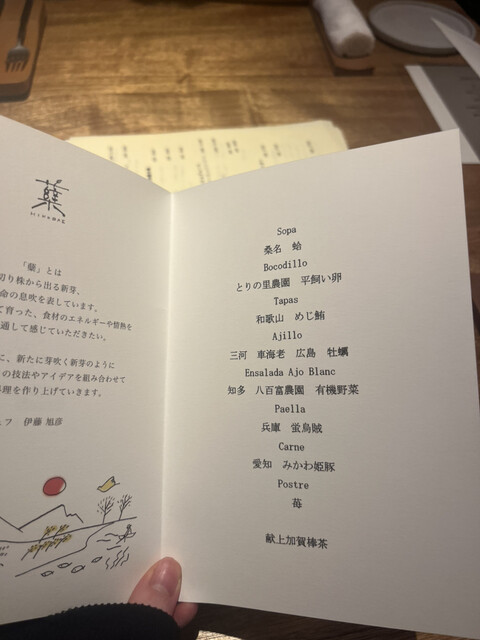 蘖
HIKOBAE
「蘖」とは
切り株から出る新芽、
命の息吹を表しています。
て育った、食材のエネルギーや情熱を
通して感じていただきたい。
に、新たに芽吹く新芽のように
の技法やアイデアを組み合わせて
理を作り上げていきます。
ェフ 伊藤 旭彦
Sopa
桑名 蛤
Bocodillo
とりの里農園 平飼い卵
Tapas
和歌山 めじ鮪
Ajillo
三河 車海老 広島 牡蠣
Ensalada Ajo Blanc
知多 八百富農園 有機野菜
Paella
兵庫 蛍烏賊
Carne
愛知 みかわ姫豚
Postre
苺
献上加賀棒茶